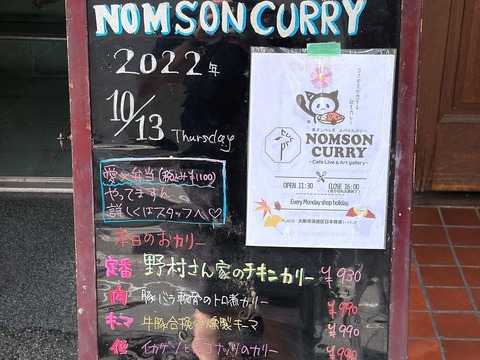 NOMSON CURRY
2022年
10/13 Thursday
愛妻弁当(税込み¥1,100)
やってますん
詳しくはスタッフへ♡
本日のおカリー
定番 野村さん家のチキンカリー ¥930
肉 豚バラ軟骨のトロ煮カリー ¥990
キーマ 牛豚合挽の燻製キーマ ¥990
イカゲソとココナッツのカリー ¥990
NOMSON
CURRY
~Cafe Live & Art gallery~
OPEN 11:30 CLOSE 16:00
Every Monday shop holiday.
PLACE 大阪市浪速区日本橋東